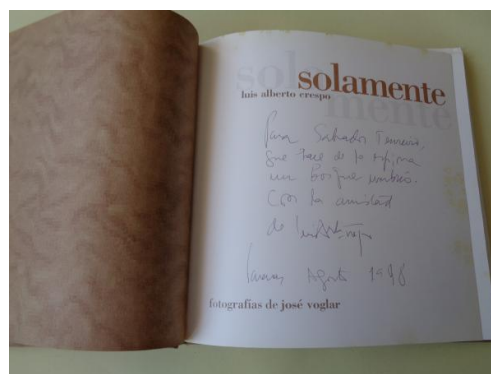 solamente
luis alberto crespo
Para Salvador Tenreiro,
que hace de la espiga
un bosque umbrío.
Con la amistad
de
Caracas Agosto 1998
fotografías de josé voglar